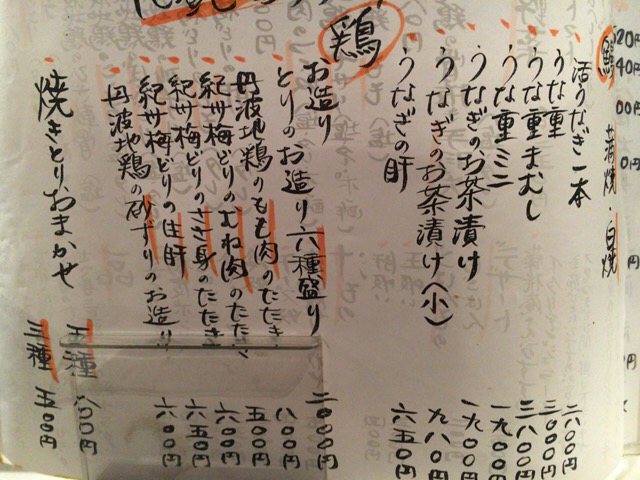 鰻 蒲焼・白焼
活うなぎ一本
うな重 三〇〇〇円
うな重まむし 三八〇〇円
うな重ミニ 一九〇〇円
うなぎのお茶漬け 一九〇〇円
うなぎのお茶漬け(小) 九八〇円
うなぎの肝 六五〇円
鶏
お造り
とりのお造り六種盛り 二〇〇〇円
丹波地鶏のもも肉のたたき 八〇〇円
紀州梅どりのむね肉のたたき 五〇〇円
紀州梅どりのささ身のたたき 六〇〇円
紀州梅どりの生肝 六五〇円
丹波地鶏の砂ずりのお造り 六〇〇円
焼きとりおまかせ
五種 八〇〇円
三種 五〇〇円